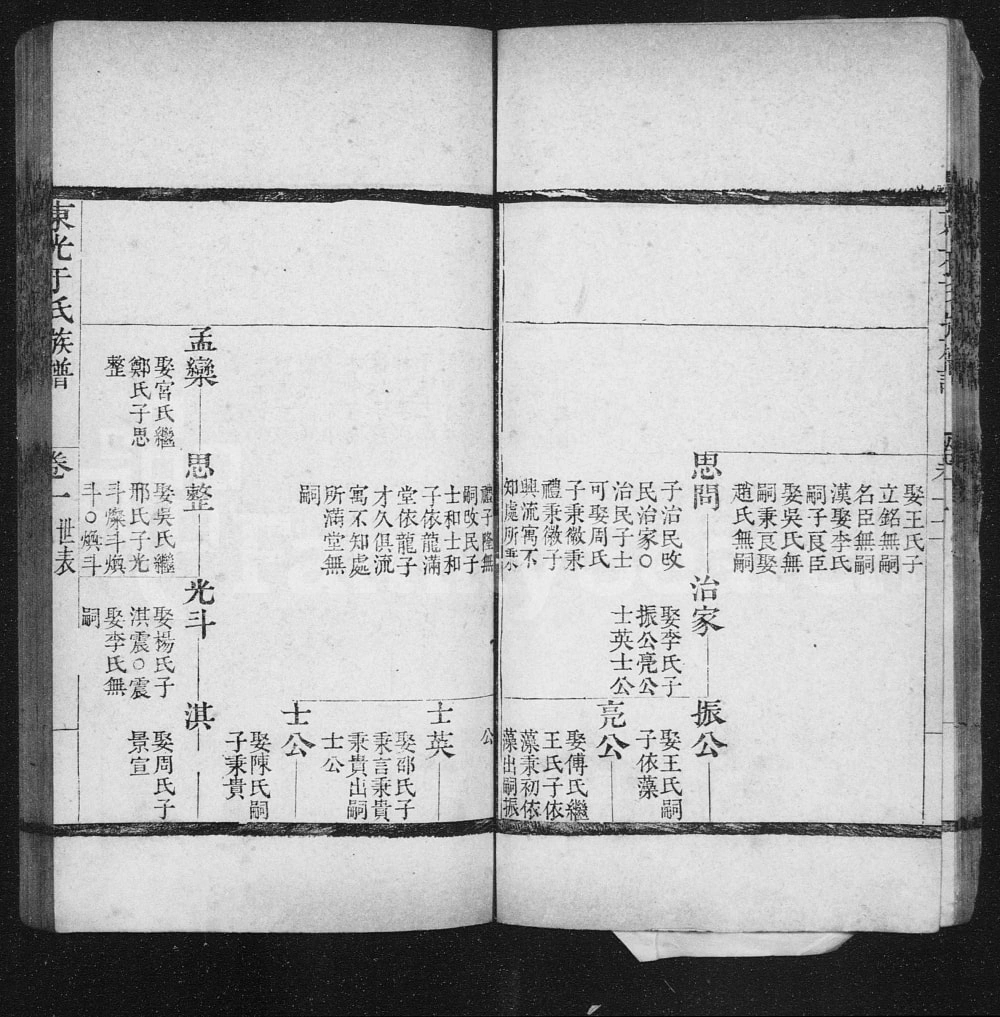 娶王氏子
立銘無嗣
名臣無嗣
漢娶李氏
嗣子良臣
娶吳氏無
嗣秉良娶
趙氏無嗣
思問
子治民攺
民治家○
治民子士
可娶周氏
子秉徽秉
禮秉徽子
興流寓不
知處所秉
禮子隆無
嗣攺民子
士和士和
子依龍滿
堂依龍子
才久俱流
寓不知處
所滿堂無
嗣
治家
娶李氏子
振公亮公
士英士公
振公
娶王氏嗣
子依藻
亮公
娶傅氏繼
王氏子依
藻秉初依
藻出嗣振
公
士英
娶邵氏子
秉言秉貴
秉貴出嗣
士公
士公
娶陳氏嗣
子秉貴
孟欒
娶宮氏繼
鄭氏子思
整
思整
娶吳氏繼
邢氏子光
斗燦斗煥
斗○煥斗
娶李氏無
嗣
光斗
娶楊氏子
淇震○震
淇
娶周氏子
景宣
東光于氏族譜
卷一 世表